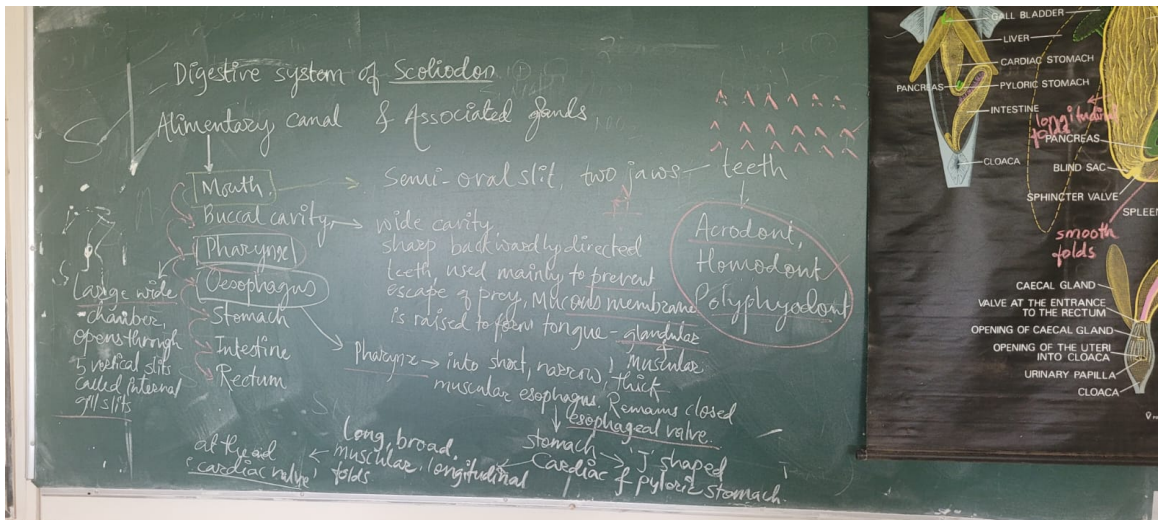 Digestive system of Scoliodon
Alimentary canal & Associated glands
Mouth
semi-oral slit, two jaws - teeth
Buccal cavity
wide cavity
sharp backwardly directed
teeth, used mainly to prevent
escape of prey, Mucous membrane
is raised to form tongue - glandular
&
muscular
Acrodont,
Homodont
Polyphyodont
Pharynx
Large wide
chamber,
opens through
5 vertical slits
called internal
gill slits
Oesophagus
Stomach
Intestine
Rectum
Pharynx → into short, narrow, thick
muscular esophagus, Remains closed
esophageal valve.
stomach → 'J' shaped
Cardiac & pyloric stomach.
Long, broad,
muscular, longitudinal
folds
at the end
'cardiac valve'
GALL BLADDER
LIVER
CARDIAC STOMACH
PANCREAS
PYLORIC STOMACH
INTESTINE
CLOACA
longitudinal
folds
PANCREAS
BLIND SAC
SPHINCTER VALVE
SPLEEN
smooth
folds
CAECAL GLAND
VALVE AT THE ENTRANCE
TO THE RECTUM
OPENING OF CAECAL GLAND
OPENING OF THE UTERI
INTO CLOACA
URINARY PAPILLA
CLOACA